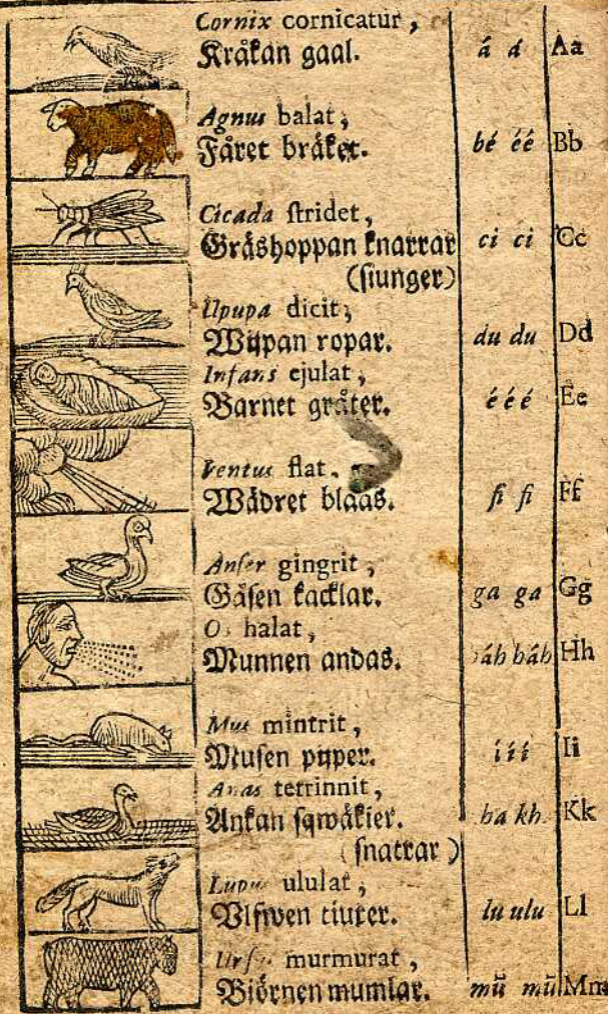 Cornix cornicatur,
Kråkan gaal. á á Aa
Agnus balat,
Fåret bräker. bé éé Bb
Cicada stridet,
Gräshoppan knarrar ci ci Cc
(siunger)
Upupa dicit,
Wijpan ropar. du du Dd
Infans ejulat,
Barnet gråter. é é é Ee
Ventus flat,
Wädret blåås. fi fi Ff
Anser gingrit,
Gåsen kacklar. ga ga Gg
Os halat,
Munnen andas. háh háh Hh
Mus mintrit,
Musen pijper. í í í Ii
Anas tetrinnit,
Ankan sqwäkier. ha kh. Kk
(snattrar)
Lupus ululat,
Vlfwen tiuter. lu ulu Ll
Ursus murmurat,
Biörnen mumlar. mũ mũ Mm